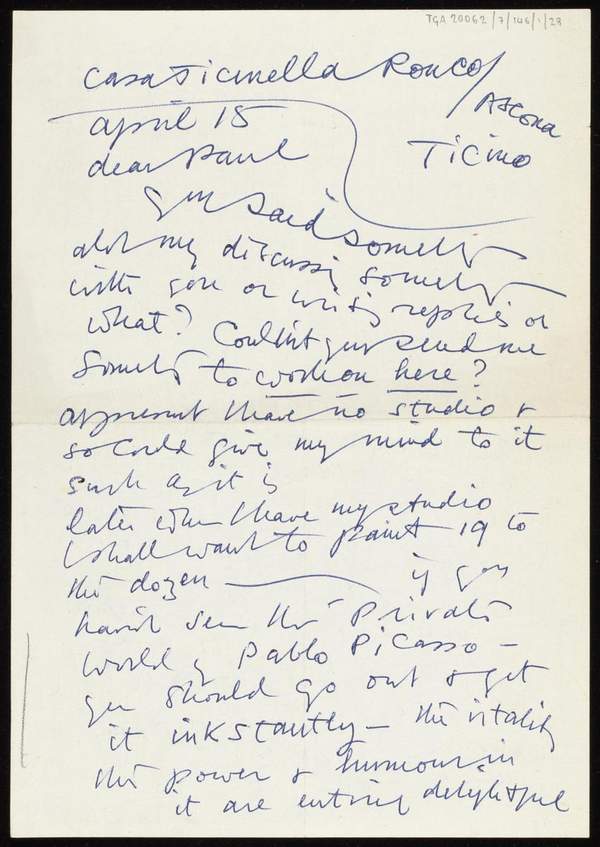 TGA 20062/7/146/1/29
Casa Ticinella Ronco/
Ascona
April 15
Ticino
dear Paul
you said someth
abt my discussing someth
with you or writing replies or
what? Couldnt you send me
someth to work on here?
at present I have no studio &
so could give my mind to it
such as it is
later when I have my studio
I shall want to paint 19 to
the dozen — if you
havent seen the "Private
World of Pablo Picasso –
you should go out & get
it inkstantly – the vitality
the power & humour in
it are entirely delightful